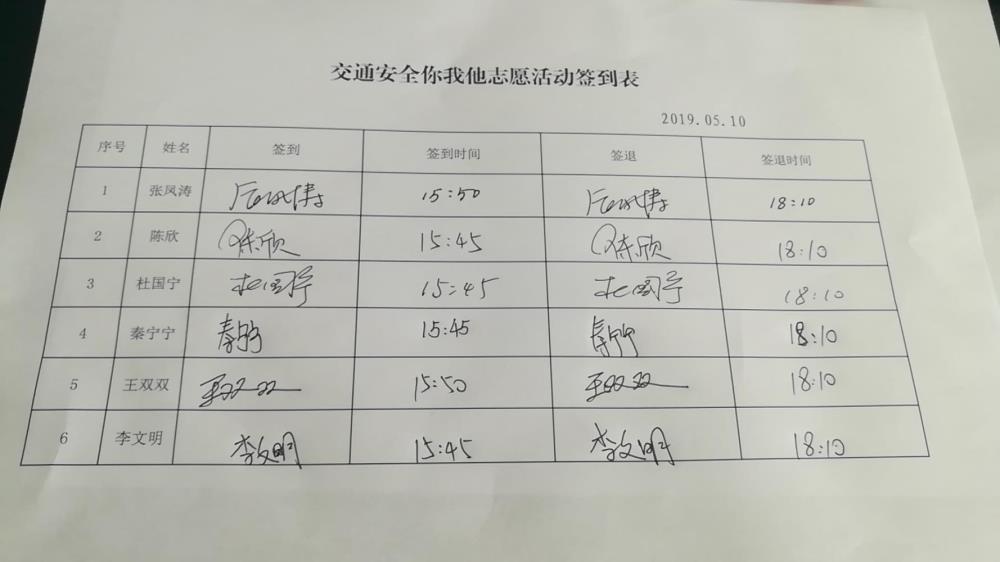 交通安全你我他志愿活动签到表
2019.05.10
序号 姓名 签到 签到时间 签退 签退时间
1 张凤涛 15:50 18:10
2 陈欣 陈欣 15:45 陈欣 18:10
3 杜国宁 杜国宁 15:45 杜国宁 18:10
4 秦宁宁 15:45 18:10
5 王双双 王双双 15:50 王双双 18:10
6 李文明 李文明 15:45 李文明 18:10